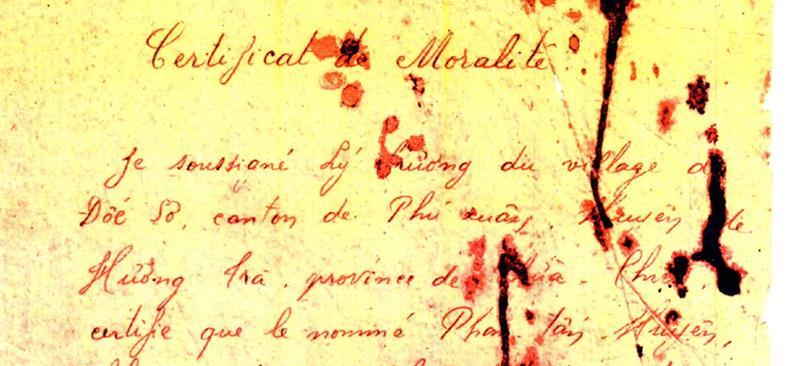 Certificat de Moralité
Je soussigné Lý trưởng du village de
Dốc Sơ, canton de Phú xuân, Huyện de
Hương Trà, province de Thừa - Thiên,
certifie que le nommé Phan tấn Huyên,